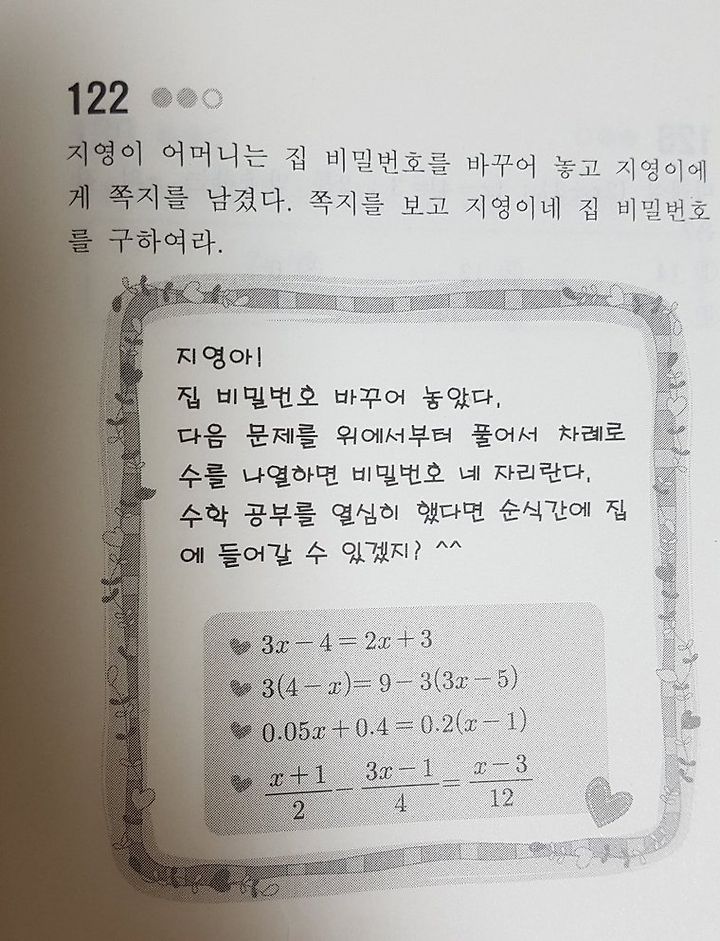 122
지영이 어머니는 집 비밀번호를 바꾸어 놓고 지영이에
게 쪽지를 남겼다. 쪽지를 보고 지영이네 집 비밀번호
를 구하여라.
지영아!
집 비밀번호 바꾸어 놓았다.
다음 문제를 위에서부터 풀어서 차례로
수를 나열하면 비밀번호 네 자리란다.
수학 공부를 열심히 했다면 순식간에 집
에 들어갈 수 있겠지? ^^
3x-4=2x+3
3(4-x)=9-3(3x-5)
0.05x+0.4=0.2(x-1)
(x+1)/2-(3x-1)/4=(x-3)/12